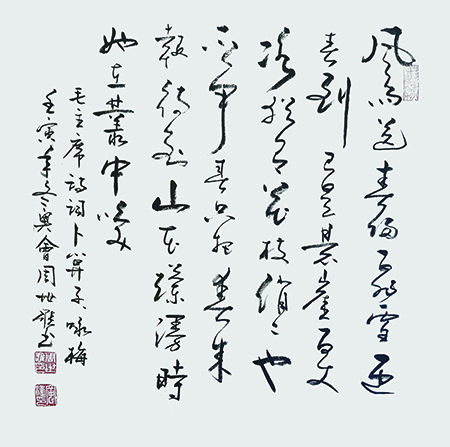 風雨送春歸飛雪迎
春到已是懸崖百丈
冰猶有花枝俏々也
不爭春只把春來
報待到山花爛漫時
她在叢中笑
毛主席詩詞卜算子咏梅
壬寅年冬奧會周世雄书